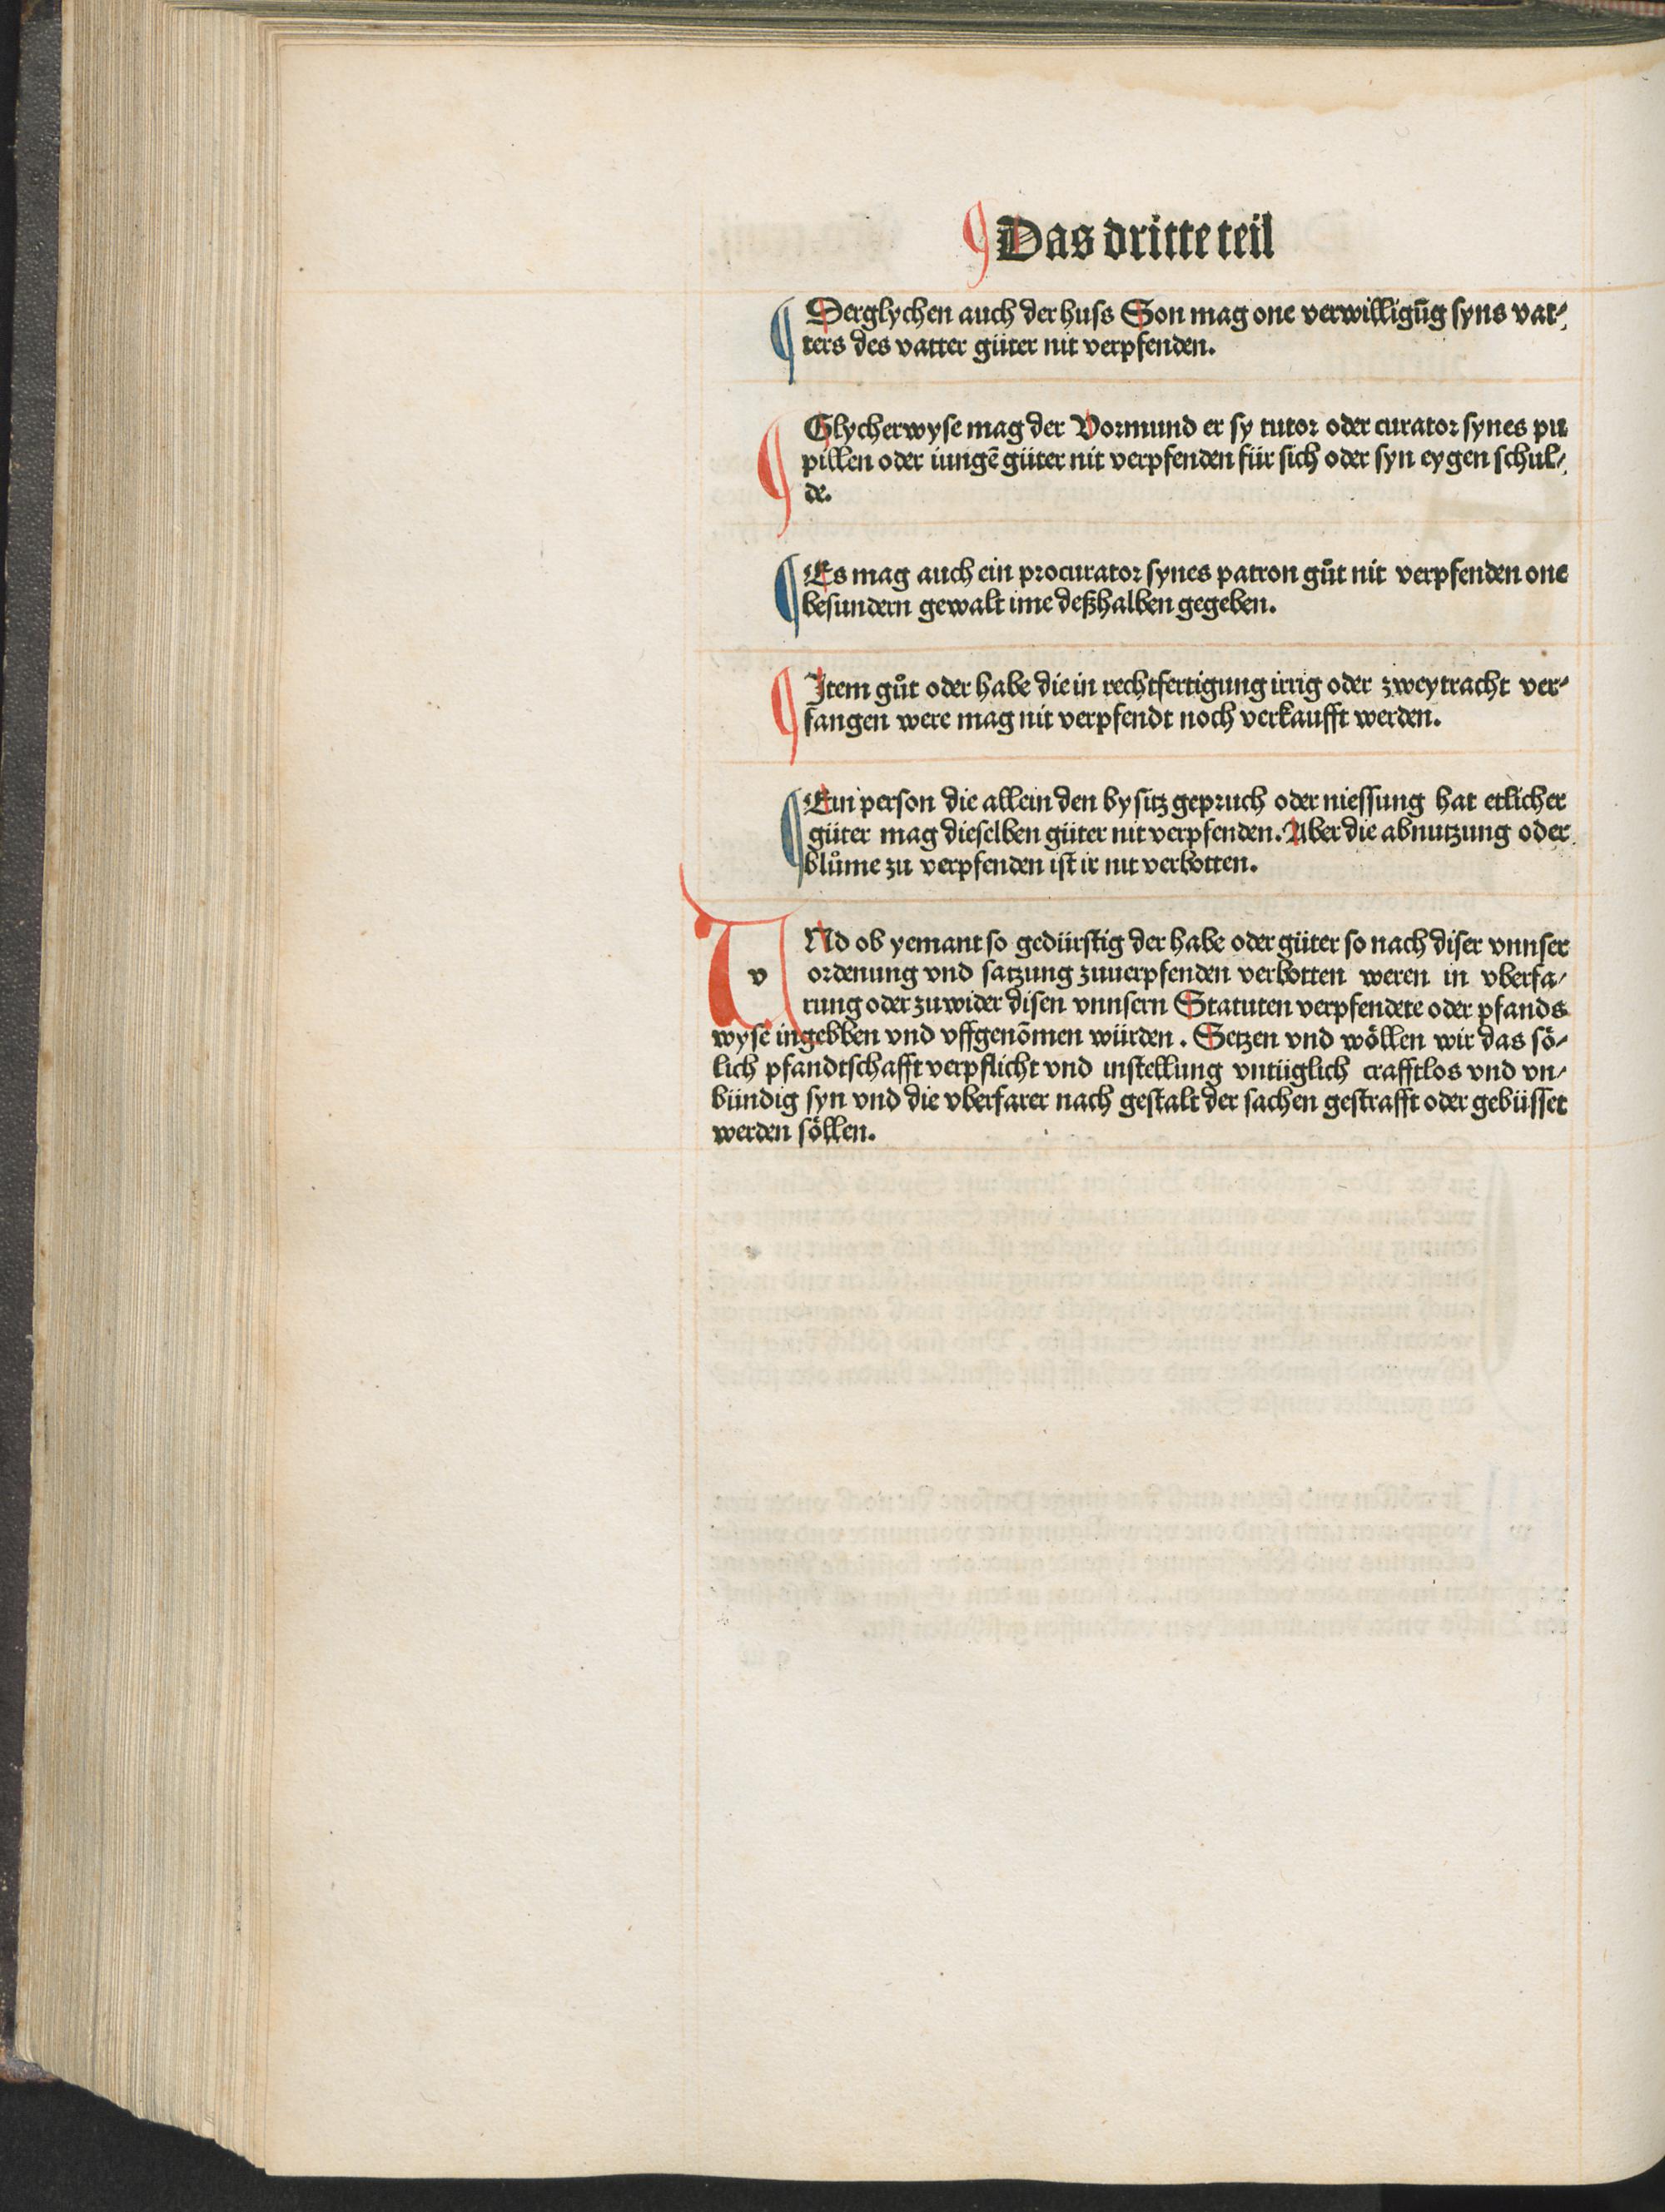 Das dritte teil
Derglychen auch der huss Son mag one verwilligūg syns vat⸗
ters des vatter güter nit verpfenden.
Glycherwyse mag der Vormund er sy tutor oder curator synes pu
pillen oder iungē güter nit verpfenden für sich oder syn eygen schul⸗
de.
Es mag auch ein procurator synes patron gůt nit verpfenden one
besundern gewalt ime deßhalben gegeben.
Item gůt oder habe die in rechtfertigung irrig oder zweytracht ver⸗
fangen were mag nit verpfendt noch verkaufft werden.
Ein person die allein den bysitz gepruch oder niessung hat etlicher
güter mag dieselben güter nit verpfenden. Aber die abnutzung oder
blůme zu verpfenden ist ir nit verbotten.
VNd ob yemant so gedürstig der habe oder güter so nach diser vnnser
ordenung vnd satzung zuuerpfenden verbotten weren in vberfa⸗
rung oder zuwider disen vnnsern Statuten verpfendete oder pfands
wyse ingebben vnd vffgenōmen würden. Setzen vnd wöllen wir das sö⸗
lich pfandtschafft verpflicht vnd instellung vntüglich crafftlos vnd vn⸗
bündig syn vnd die vberfarer nach gestalt der sachen gestrafft oder gebüsset
werden söllen.